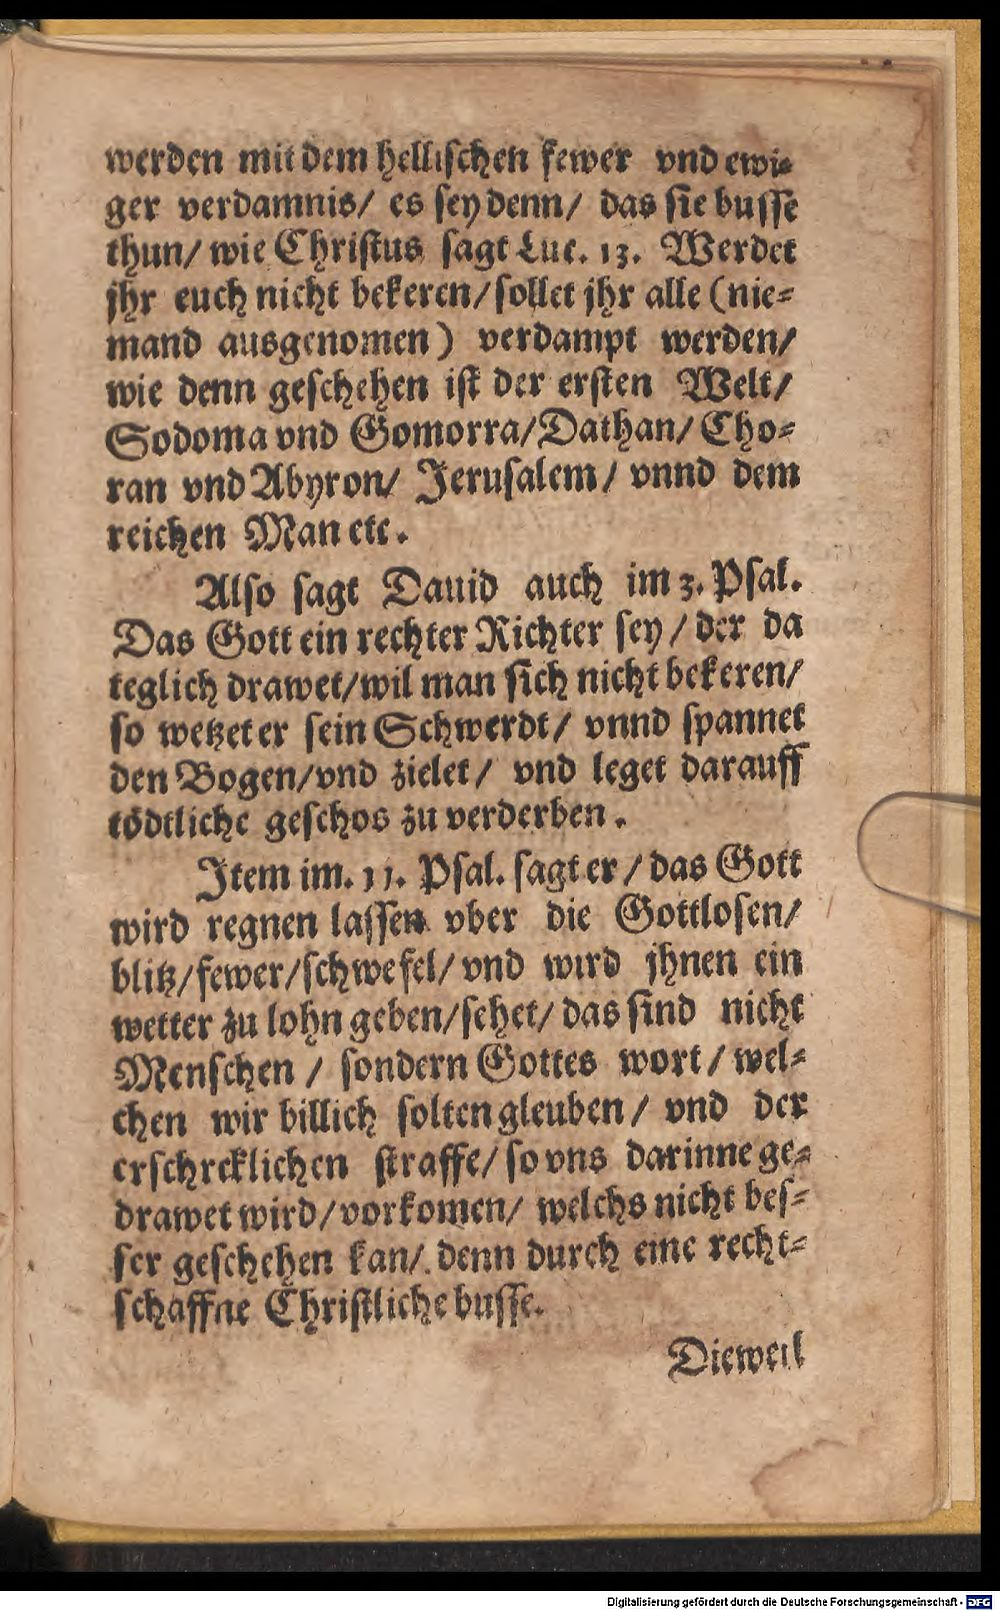 werden mit dem hellischen fewer vnd ewi-
ger verdamnis/ es sey denn/ das sie busse
thun/ wie Christus sagt Luc. 13. Werdet
jhr euch nicht bekeren/ sollet jhr alle (nie-
mand ausgenomen) verdampt werden/
wie denn geschehen ist der ersten Welt/
Sodoma vnd Gomorra/ Dathan/ Cho-
ran vnd Abyron/ Jerusalem/ vnnd dem
reichen Man etc.
Also sagt Dauid auch im 3. Psal.
Das Gott ein rechter Richter sey/ der da
teglich drawet/ wil man sich nicht bekeren/
so wetzet er sein Schwerdt/ vnnd spannet
den Bogen/ vnd zielet/ vnd leget darauff
tödtliche geschos zu verderben.
Item im. 11. Psal. sagt er/ das Gott
wird regnen lassen vber die Gottlosen/
blitz/ fewer/ schwefel/ vnd wird jhnen ein
wetter zu lohn geben/ sehet/ das sind nicht
Menschen/ sondern Gottes wort/ wel-
chen wir billich solten gleuben/ vnd der
erschrcklichen straffe/ so vns darinne ge-
drawet wird/ vorkomen/ welchs nicht bes-
ser geschehen kan/ denn durch eine recht-
schaffne Christliche busse.
Dieweil
Digitalisierung gefördert durch die Deutsche Forschungsgemeinschaft - DFG